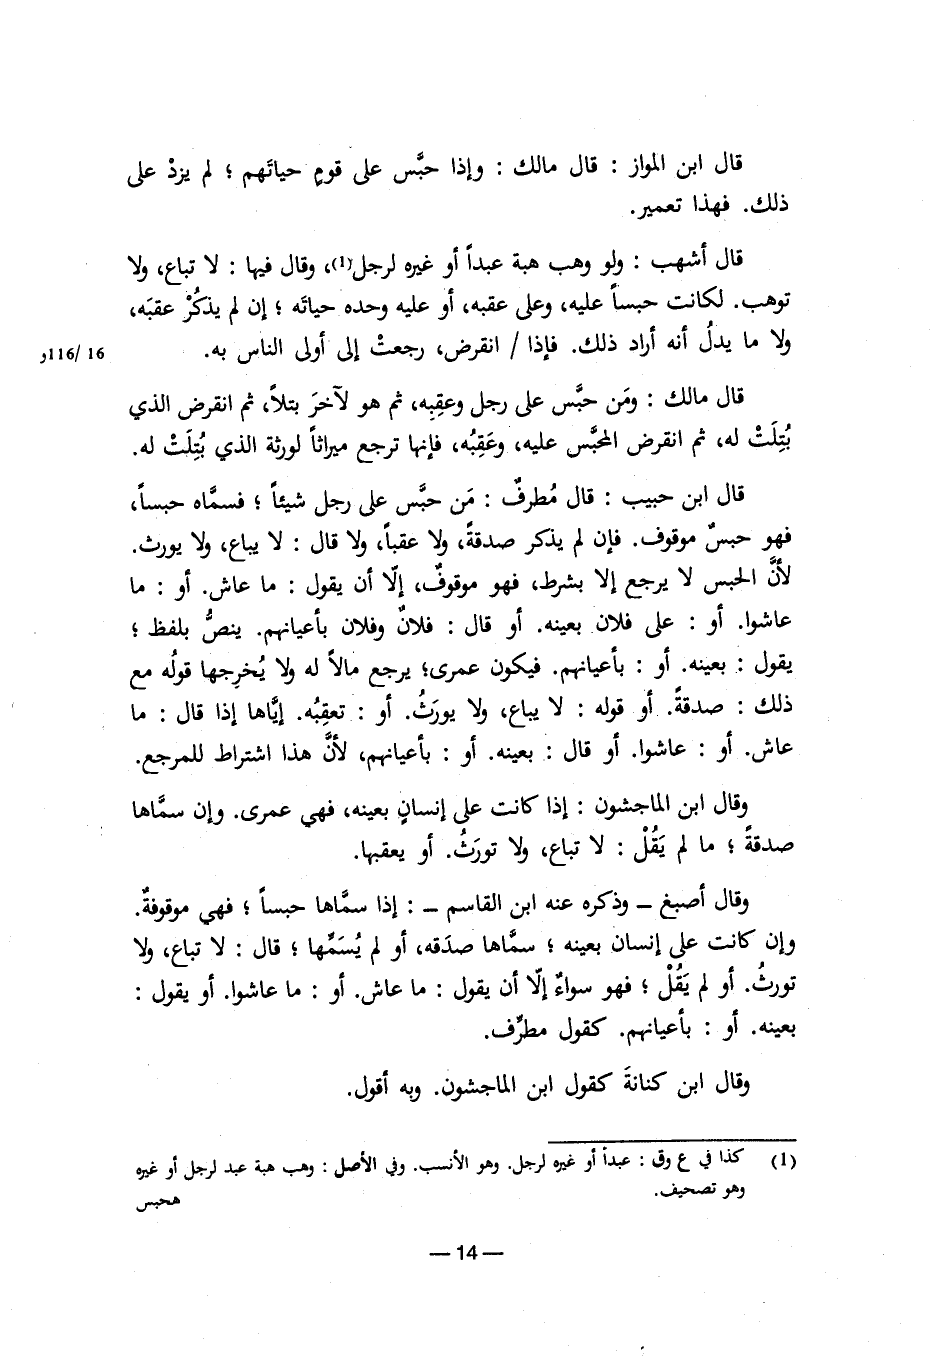 قال ابن المواز : قال مالك : وإذا حبَّس على قومٍ حياتَهم ؛ لم يزدْ على
ذلك. فهذا تعمير.
قال أشهب : ولو وهب هبة عبداً أو غيره لرجل(1)، وقال فيها : لا تباع، ولا
توهب. لكانت حبساً عليه، وعلى عقبه، أو عليه وحده حياتَه ؛ إن لم يذكُرْ عقبَه،
ولا ما يدلُ أنه أراد ذلك. فإذا / انقرض، رجعتْ إلى أولى الناس به.
16 /116و
قال مالك : ومَن حبَّس على رجل وعقِبِه، ثم هو لآخرَ بتلاً، ثم انقرض الذي
بُتِلَتْ له، ثم انقرض المحبَّس عليه، وعَقِبُه، فإنها ترجع ميراثاً لورثة الذي بُتِلَتْ له.
قال ابن حبيب : قال مُطرفٌ : مَن حبَّس على رجل شيئاً ؛ فسمَّاه حبساً،
فهو حبسٌ موقوف. فإن لم يذكر صدقةً، ولا عقباً، ولا قال : لا يباع، ولا يورث.
لأنَّ الحبس لا يرجع إلا بشرط، فهو موقوفٌ، إلّا أن يقول : ما عاش. أو : ما
عاشوا. أو : على فلان بعينه. أو قال : فلانٌ وفلان بأعيانهم. ينصُّ بلفظ ؛
يقول : بعينه. أو : بأعيانهم. فيكون عمرى؛ يرجع مالاً له ولا يُخرِجها قولُه مع
ذلك : صدقةً. أو قوله : لا يباع، ولا يورَثُ. أو : تعقِبُه. إيَّاها إذا قال : ما
عاش. أو : عاشوا. أو قال : بعينه. أو : بأعيانهم، لأنَّ هذا اشتراط للمرجع.
وقال ابن الماجشون : إذا كانت على إنسانٍ بعينه، فهي عمرى. وإن سمَّاها
صدقةً ؛ ما لم يَقُلْ : لا تباع، ولا تورَثُ. أو يعقبها.
وقال أصبغ ــ وذكره عنه ابن القاسم ــ : إذا سمَّاها حبساً ؛ فهي موقوفةٌ.
وإن كانت على إنسان بعينه ؛ سمَّاها صدَقه، أو لم يُسَمِّها ؛ قال : لا تباع، ولا
تورثُ. أو لم يَقُلْ ؛ فهو سواءٌ إلّا أن يقول : ما عاش. أو : ما عاشوا. أو يقول :
بعينه. أو : بأعيانهم. كقول مطرِّف.
وقال ابن كنانةَ كقول ابن الماجشون. وبه أقول.
(1) كذا في ع وق : عبدأ أو غيره لرجل. وهو الأنسب. وفي الأصل : وهب هبة عبد لرجل أو غيره
وهو تصحيف. هحبس
— 14 —